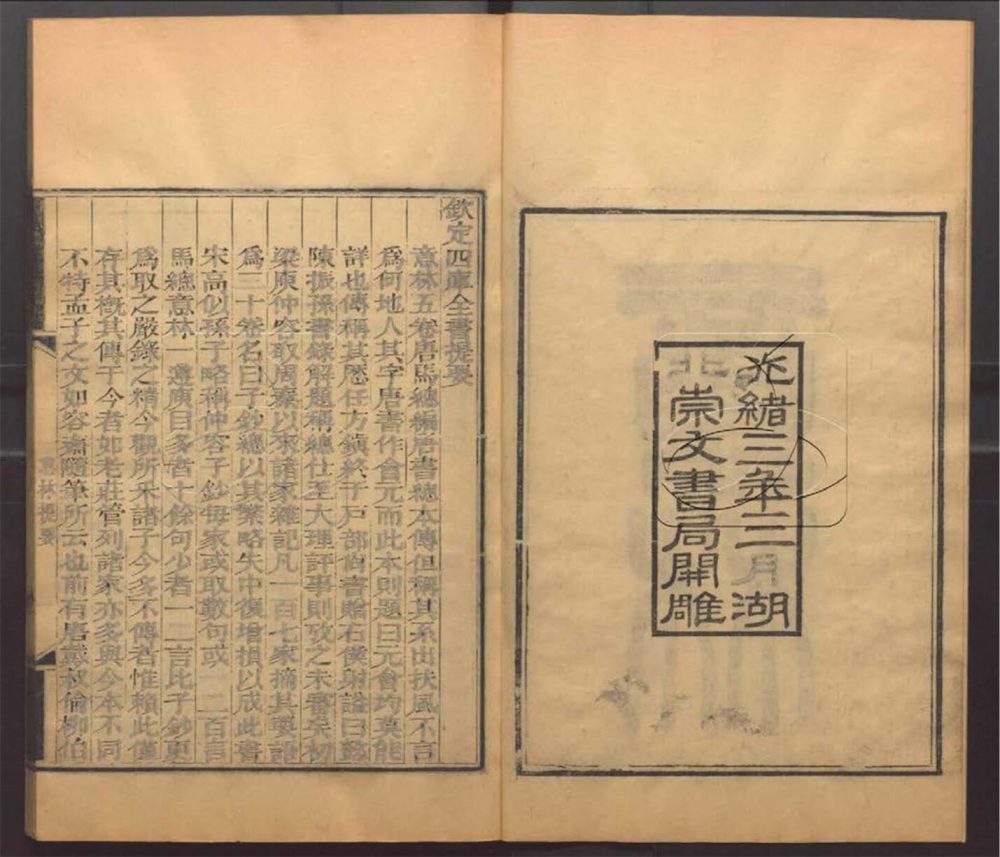 光緒三年三月湖
北崇文書局開雕
欽定四庫全書提要
意林五卷唐馬總編唐書總本傳但稱其系出扶風不言
爲何地人其字唐書作會元而此本則題曰元會均莫能
詳也傳稱其歷任方鎮終于戸部尚書贈右僕射諡曰懿
陳振孫書錄解題稱總仕至大理評事則攷之未審矣初
梁庾仲容取周秦以來諸家雜記凡一百七家摘其要語
爲三十卷名曰子鈔總以其繁略失中復增損以成此書
宋高似孫子略稱仲容子鈔每家或取數句或一二百言
馬總意林一遵庾目多者十餘句少者一二言比子鈔更
爲取之嚴錄之精今觀所采諸子今多不傳者惟賴此僅
存其槪其傳于今者如老莊管列諸家亦多與今本不同
不特孟子之文如容齋隨筆所云也前有唐戴叔倫柳伯
意林提要